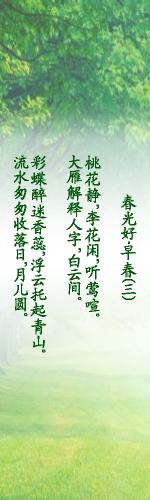 春光好·早春(三)
桃花静,李花闲,听莺喧。
大雁解释人字,白云间。
彩蝶醉迷香蕊,浮云托起青山。
流水匆匆收落日,月儿圆。